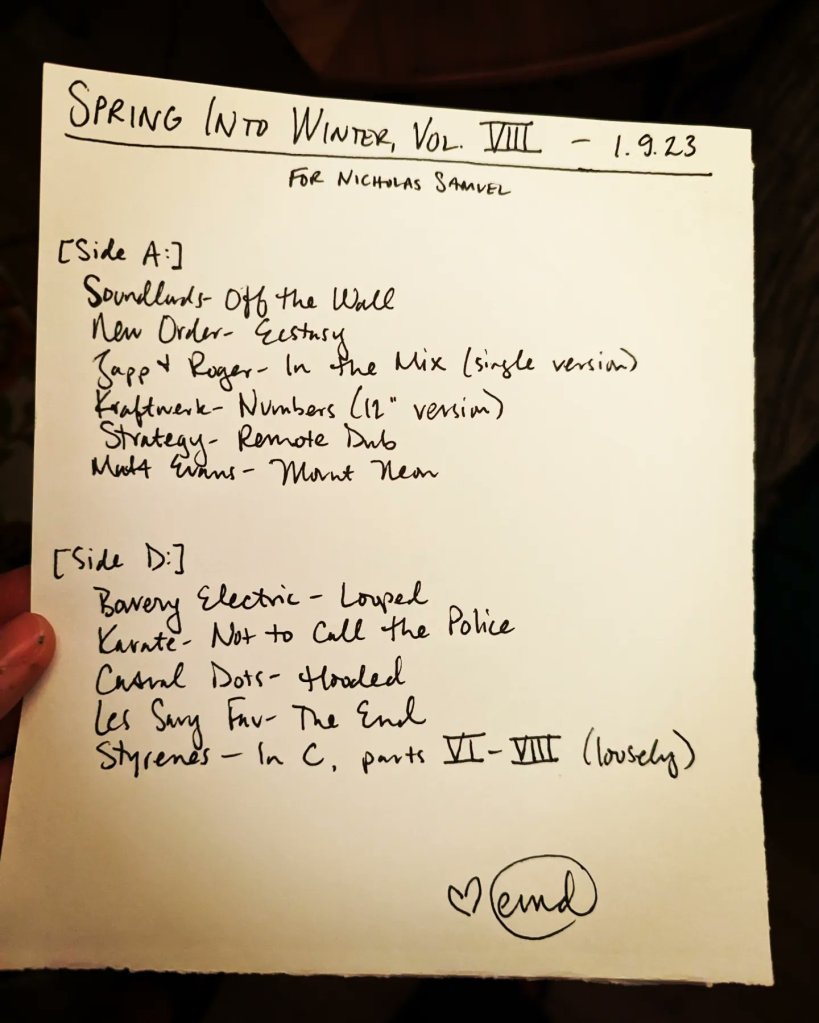 SPRING INTO WINTER, VOL. VIII - 1.9.23
FOR NICHOLAS SAMUEL
[Side A:]
Soundlads- Off the Wall
New Order- Ecstasy
Zapp + Roger- In the Mix (single version)
Kraftwerk- Numbers (12" version)
Strategy- Remote Dub
Evans- Mount Neon
[Side D:]
Bowery Electric - Looped
Karate- Not to Call the Police
Casual Dots- Flooded
Les Savy Fav- The End
Styrenes - In C, parts VI-VIII (loosely)
♡ emd